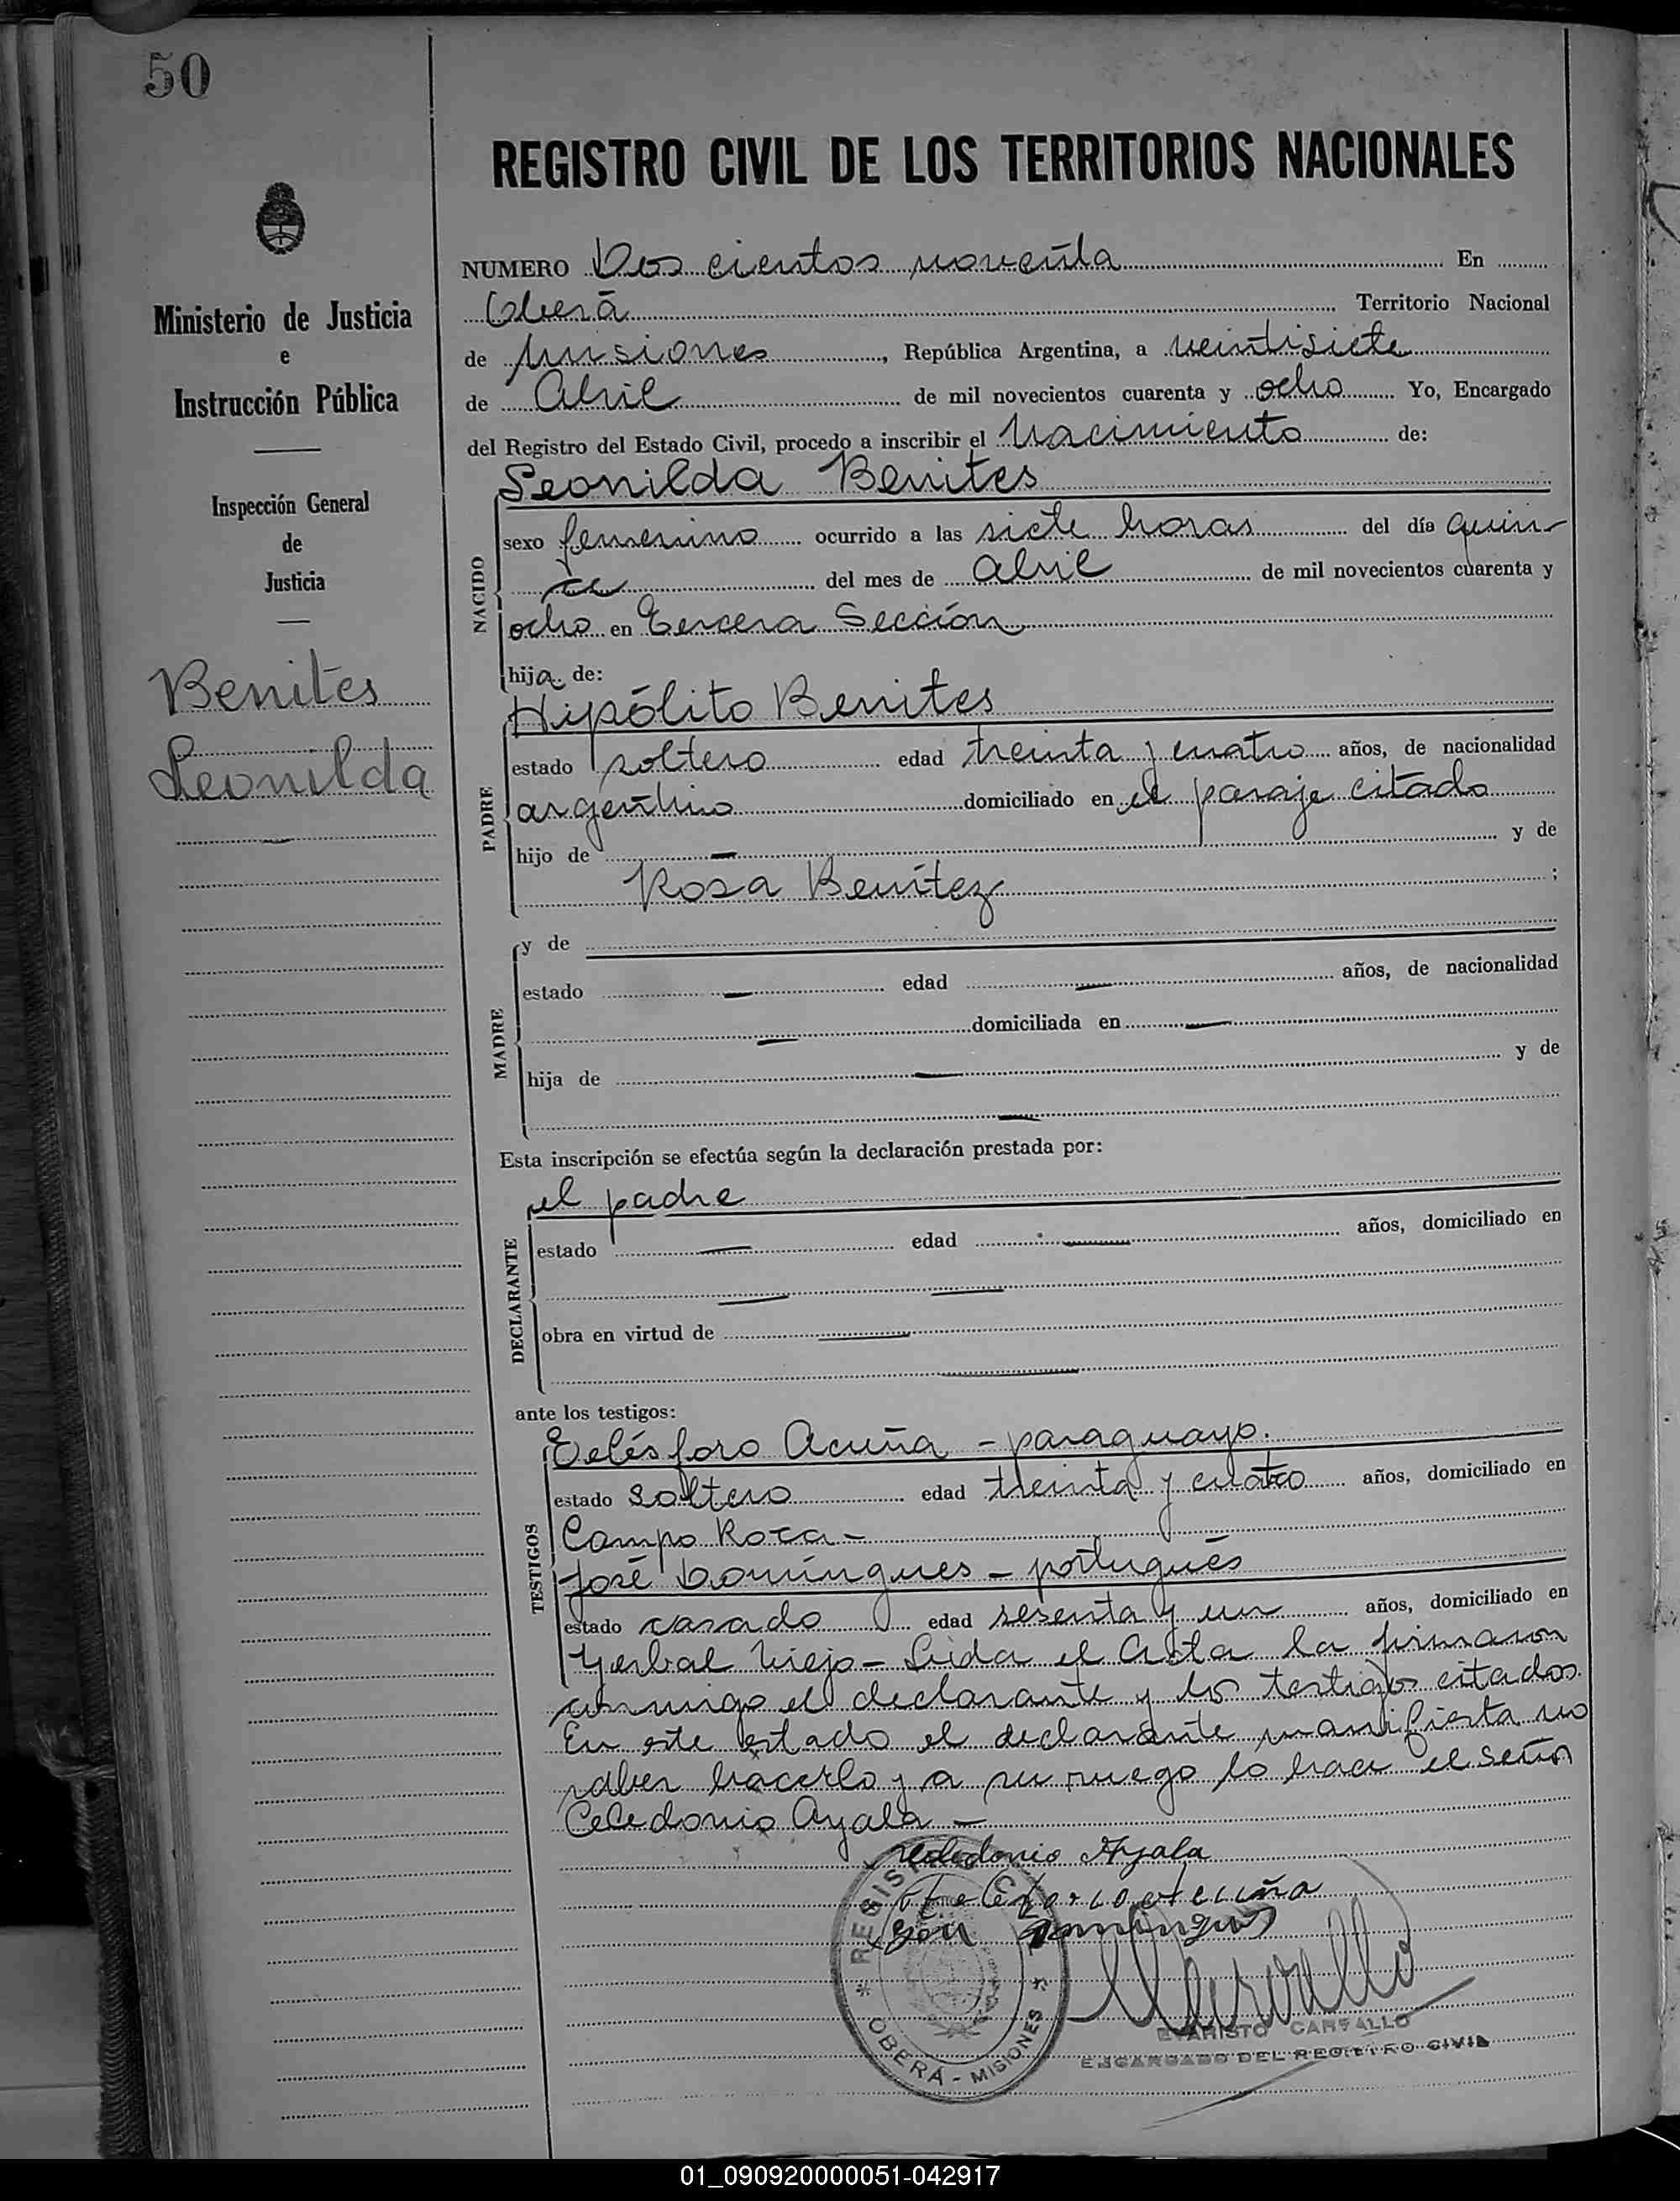 50
REGISTRO CIVIL DE LOS TERRITORIOS NACIONALES
Ministerio de Justicia
e
Instrucción Pública
Inspección General
de
Justicia
Benites
Leonilda
NUMERO Dos cientos noventa En
Oberá Territorio Nacional
de Misiones, República Argentina, a veintisiete
de Abril de mil novecientos cuarenta y ocho Yo, Encargado
del Registro del Estado Civil, procedo a inscribir el Nacimiento de:
NACIDO
Leonilda Benites
sexo femenino ocurrido a las siete horas del día quin-
ce del mes de Abril de mil novecientos cuarenta y
ocho en Tercera Sección
hija de:
PADRE
Hipólito Benites
estado soltero edad treinta y cuatro años, de nacionalidad
argentino domiciliado en el paraje citado
hijo de — y de
Rosa Benítez ;
MADRE
y de
estado — edad — años, de nacionalidad
— domiciliada en —
hija de — y de
—
Esta inscripción se efectúa según la declaración prestada por:
DECLARANTE
el padre
estado — edad — años, domiciliado en
— —
obra en virtud de —
—
ante los testigos:
TESTIGOS
Telésforo Acuña - paraguayo.
estado soltero edad treinta y cuatro años, domiciliado en
Campo Roca -
José Domíngues - portugués
estado casado edad sesenta y un años, domiciliado en
Yerbal Viejo - Leída el Acta la firmaron
conmigo el declarante y los testigos citados.
En este estado el declarante manifiesta no
saber hacerlo y a su ruego lo hace el señor
Celedonio Ayala -
Celedonio Ayala
Telesforo Acuña
REGISTRO
OBERÁ - MISIONES
EVARISTO CARVALLO
ENCARGADO DEL REGISTRO CIVIL
01_090920000051-042917